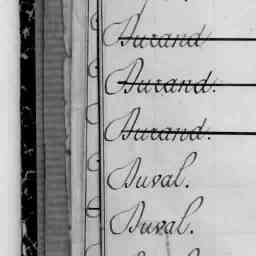 Durand
Durand.
Durand.
Duval.
Duval.